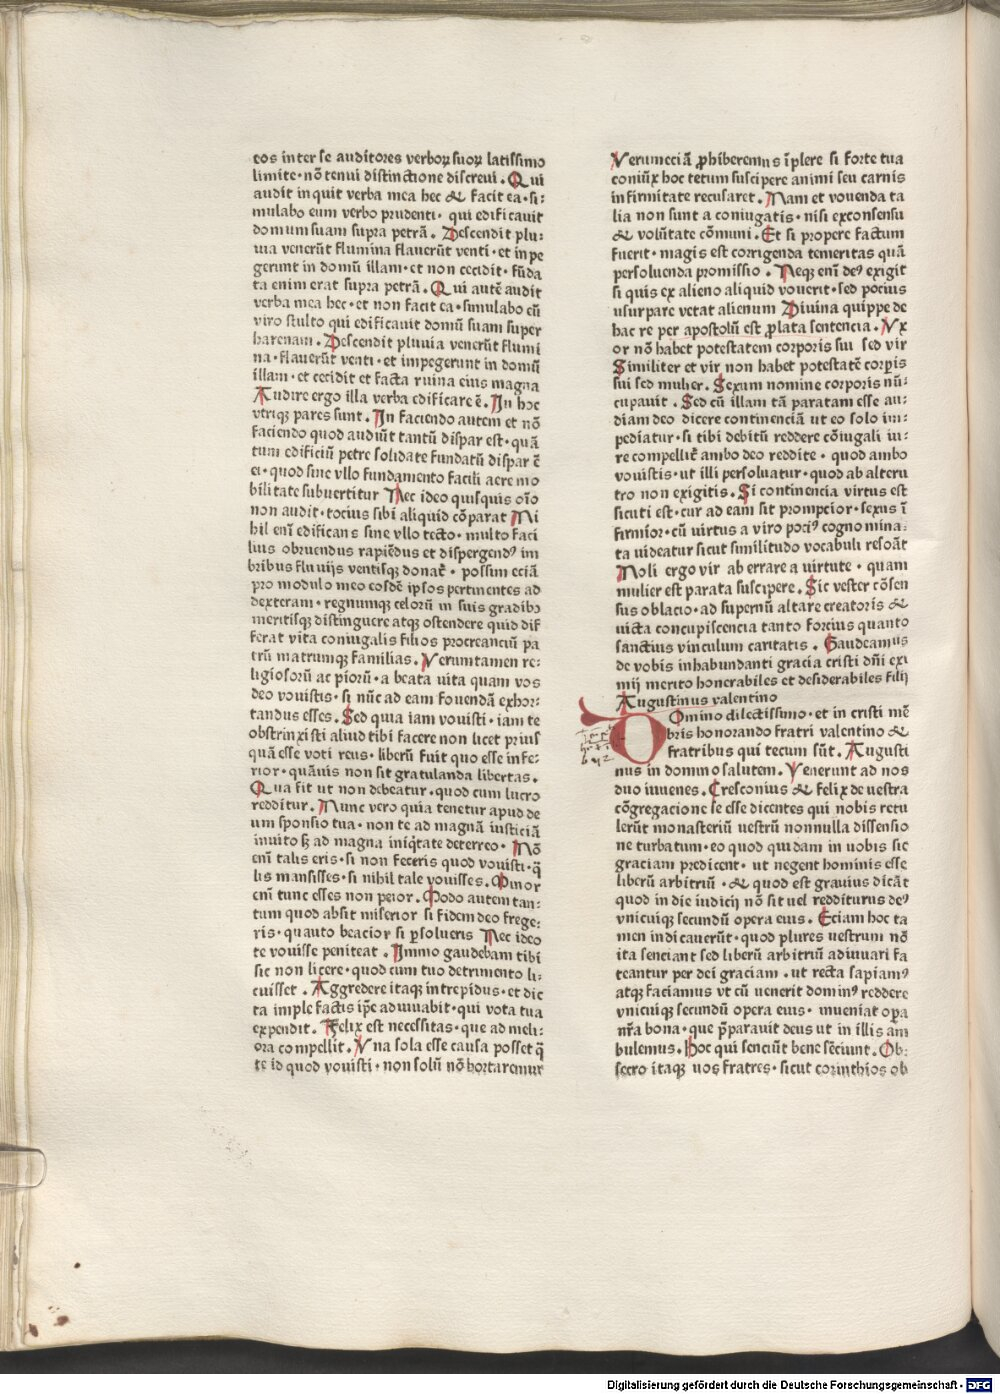 cos inter se auditores verboꝝ suoꝝ latissimo
limite · nō tenui distinctione discreui . Qui
audit inquit verba mea hec & facit ea · si:
mulabo eum verbo prudenti · qui edificauit
domum suam supra petrā . Descendit plu:
uia venerūt flumina flauerūt venti · et inpe
gerunt in domū illam · et non cecidit · fūda
ta enim erat supra petrā . Qui autē audit
verba mea hec · et non facit ea · simulabo eū
viro stulto qui edificauit domū suam super
harenam . Descendit pluuia venerūt flumi
na · flauerūt venti · et impegerunt in domū
illam · et cecidit et facta ruina eius magna
Audire ergo illa verba edificare ē . In hoc
vtriqꝫ pares sunt . In faciendo autem et nō
faciendo quod audiūt tantū dispar est · quā
tum edificiū petre solidate fundatū dispar ē
ei · quod sine vllo fundamento facili aere mo
bilitate subuertitur Nec ideo quisquis oīo
non audit · tocius sibi aliquid cōparat Ni
hil enī edificans sine vllo tecto · multo faci
lius obruendus rapiēdus et dispergendꝰ im
bribus fluuijs ventisqꝫ donat᷑ · possim eciā
pro modulo meo eosdē ipsos pertinentes ad
dexteram · regnumqꝫ celorū in suis gradibꝫ
meritisqꝫ distinguere atqꝫ ostendere quid dif
ferat vita coniugalis filios procreanciū pa
trū matrumqꝫ familias . Verumtamen re:
ligiosorū ac piorū · a beata uita quam vos
deo vouistis · si nūc ad eam fouendā exhor:
tandus esses . Sed quia iam vouisti · iam te
obstrinxisti aliud tibi facere non licet prius
quā esse voti reus · liberū fuit quo esse infe:
rior · quāuis non sit gratulanda libertas .
Qua fit ut non debeatur · quod cum lucro
redditur . Nunc vero quia tenetur apud de
um sponsio tua · non te ad magnā iusticiā
inuito sꝫ ad magna iniq̇tate deterreo · Nō
enī talis eris · si non feceris quod vouisti · q̄
lis mansisses · si nihil tale vouisses . Minor
enī tunc esses non peior . Modo autem tan:
tum quod absit miserior si fidem deo frege:
ris · quanto beacior si ꝑsolueris Nec ideo
te vouisse peniteat . Immo gaudebam tibi
sic non licere · quod cum tuo detrimento li:
cuisset . Aggredere itaqꝫ intrepidus · et dic
ta imple factis ip̄e adiuuabit · qui vota tua
expendit . Felix est necessitas · que ad meli:
ora compellit . Vna sola esse causa posset q̄
te id quod vouisti · non solū nō hortaremur
Verumeciā ꝓhiberemus īplere si forte tua
coniūx hoc tetum suscipere animi seu carnis
infirmitate recusaret . Nam et vouenda ta
lia non sunt a coniugatis · nisi exconsensu
& volūtate cōmuni . Et si propere factum
fuerit · magis est corrigenda temeritas quā
persoluenda promissio . Neqꝫ enī deꝰ exigit
si quis ex alieno aliquid vouerit · sed pocius
usurpare vetat alienum Diuina quippe de
hac re per apostolū est ꝓlata sentencia . Vx
or nō habet potestatem corporis sui sed vir
Similiter et vir non habet potestatē corꝑis
sui sed mulier . Sexum nomine corporis nū:
cupauit . Sed cū illam tā paratam esse au:
diam deo dicere continenciā ut eo solo im:
pediatur · si tibi debitū reddere cōiugali iu:
re compellit᷑ ambo deo reddite · quod ambo
vouistis · ut illi persoluatur · quod ab alteru
tro non exigitis . Si continencia virtus est
sicuti est · cur ad eam sit prompcior · sexus ī
firmior · cū virtus a viro pociꝰ cognomina:
ta uideatur sicut similitudo vocabuli resoāt
Noli ergo vir ab errare a uirtute · quam
mulier est parata suscipere . Sic vester cōsen
sus oblacio · ad supernū altare creatoris &
uicta concupiscencia tanto forcius quanto
sanctius vinculum caritatis . Gaudeamus
de vobis inhabundanti gracia cristi dn̄i exi
mij merito honerabiles et desiderabiles filij
Augustinus valentino
Domino dilectissimo · et in cristi mē
bris honorando fratri valentino &
fratribus qui tecum sūt . Augusti
nus in domino salutem . Venerunt ad nos
duo iuuenes . Cresconius & felix de uestra
cōgregacione se esse dicentes qui nobis retu
lerūt monasteriū uestrū nonnulla dissensio
ne turbatum · eo quod quidam in uobis sic
graciam predicent · ut negent hominis esse
liberū arbitriū · & quod est grauius dicāt
quod in die iudicij nō sit uel redditurus deꝰ
vnicuiqꝫ secundū opera eius . Eciam hoc ta
men indicauerūt · quod plures uestrum nō
ita senciant sed liberū arbitriū adiuuari fa
teantur per dei graciam . ut recta sapiamꝰ
atqꝫ faciamus ut cū uenerit dominꝰ reddere
vnicuiqꝫ secundū opera eius · inueniat oꝑa
nr̄a bona · que p̄parauit deus ut in illis am
bulemus . Hoc qui senciūt bene sēciunt . Ob:
secro itaqꝫ uos fratres · sicut corinthios ob
Digitalisierung gefördert durch die Deutsche Forschungsgemeinschaft - DFG